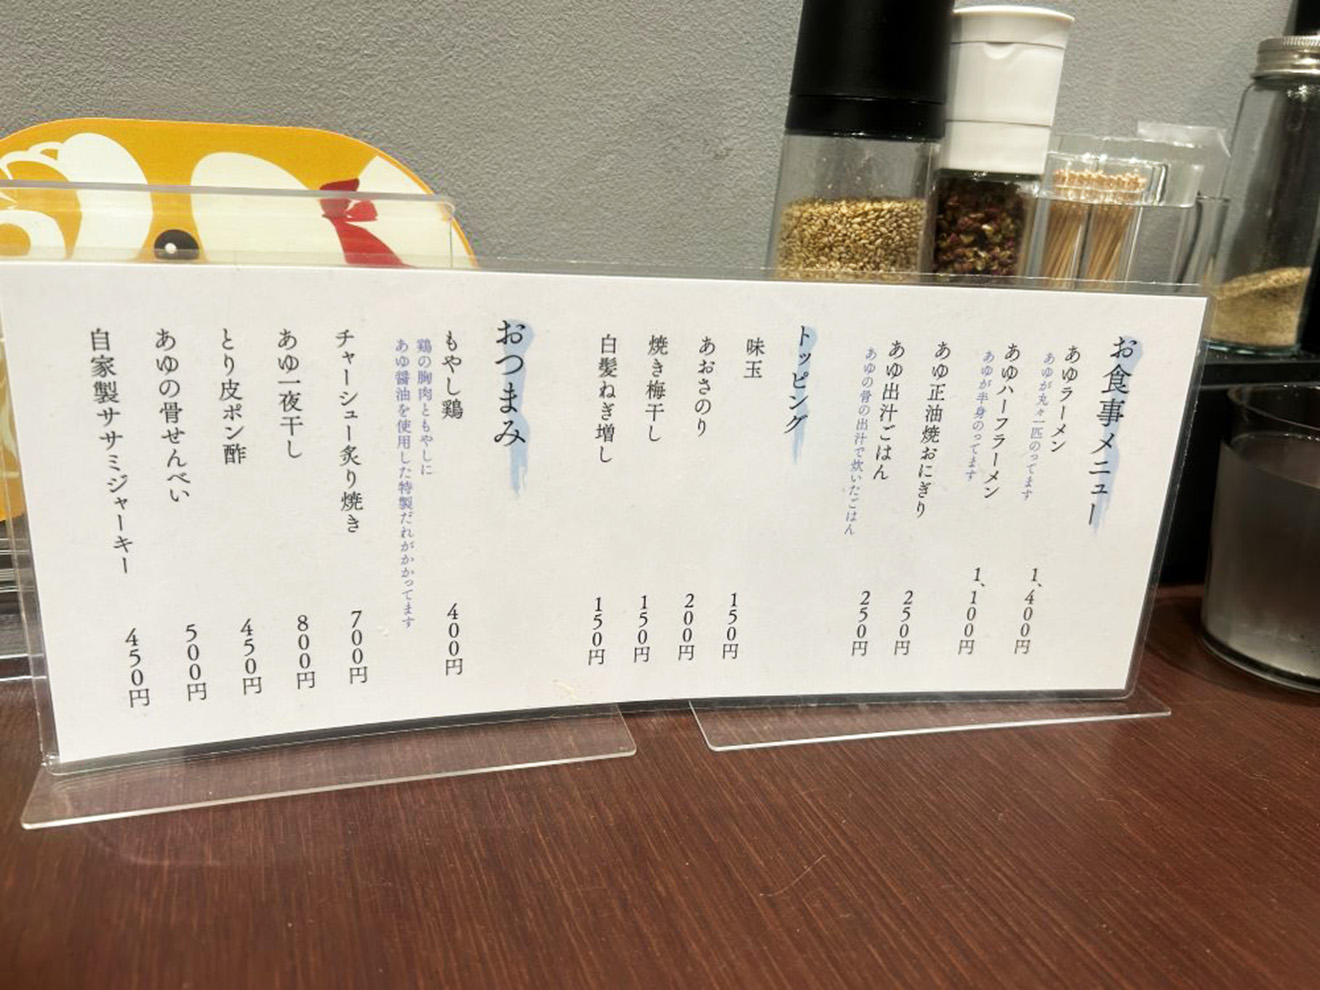 お食事メニュー
あゆラーメン 1,400円
あゆが丸々一匹のってます
あゆハーフラーメン 1,100円
あゆが半身のってます
あゆ正油焼おにぎり 250円
あゆ出汁ごはん 250円
あゆの骨の出汁で炊いたごはん
トッピング
味玉 150円
あおさのり 200円
焼き梅干し 150円
白髪ねぎ増し 150円
おつまみ
もやし鶏 400円
鶏の胸肉ともやしに
あゆ醤油を使用した特製だれがかかってます
チャーシュー炙り焼き 700円
あゆ一夜干し 800円
とり皮ポン酢 450円
あゆの骨せんべい 500円
自家製ササミジャーキー 450円